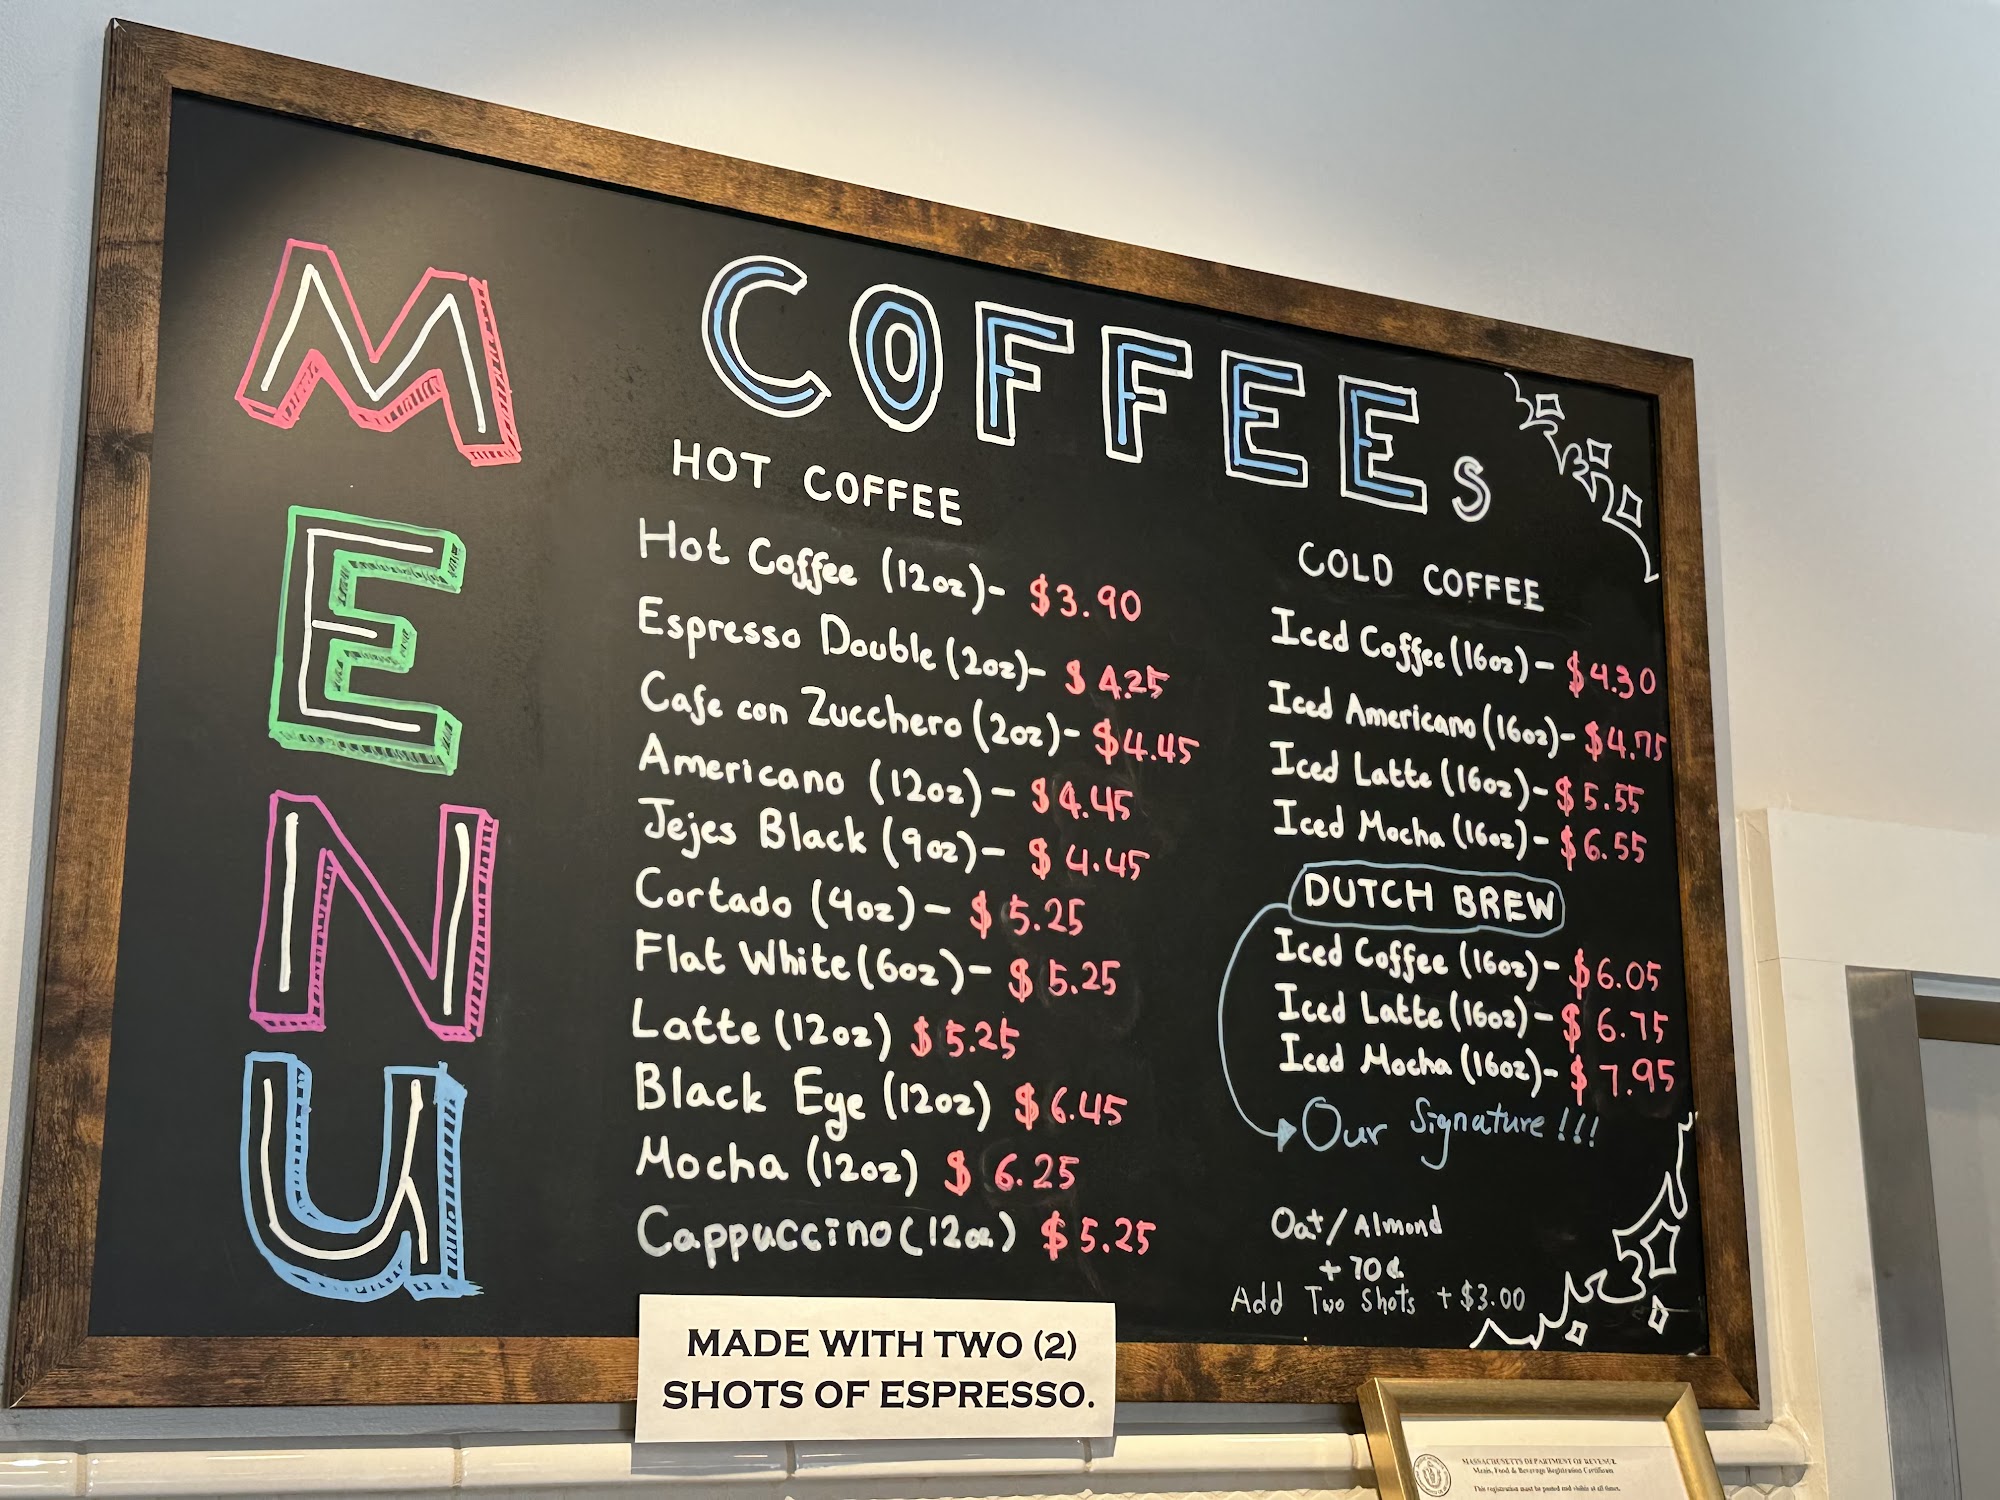 MENU
COFFEEs
HOT COFFEE
Hot Coffee (12oz)- $3.90
Espresso Double (2oz)- $4.25
Cafe con Zucchero (2oz)- $4.45
Americano (12oz)- $4.45
Jejes Black (9oz)- $4.45
Cortado (4oz)- $5.25
Flat White (6oz)- $5.25
Latte (12oz) $5.25
Black Eye (12oz) $6.45
Mocha (12oz) $6.25
Cappuccino (12oz) $5.25
COLD COFFEE
Iced Coffee (16oz)- $4.30
Iced Americano (16oz)- $4.75
Iced Latte (16oz)- $5.55
Iced Mocha (16oz)- $6.55
DUTCH BREW
Iced Coffee (16oz)- $6.05
Iced Latte (16oz)- $6.75
Iced Mocha (16oz)- $7.95
Our Signature!!!
Oat/Almond
+70¢
Add Two Shots +$3.00
MADE WITH TWO (2)
SHOTS OF ESPRESSO.
MASSACHUSETTS DEPARTMENT OF REVENUE
Meals, Food & Beverage Registration Certificate
This registration must be posted and visible at all times.